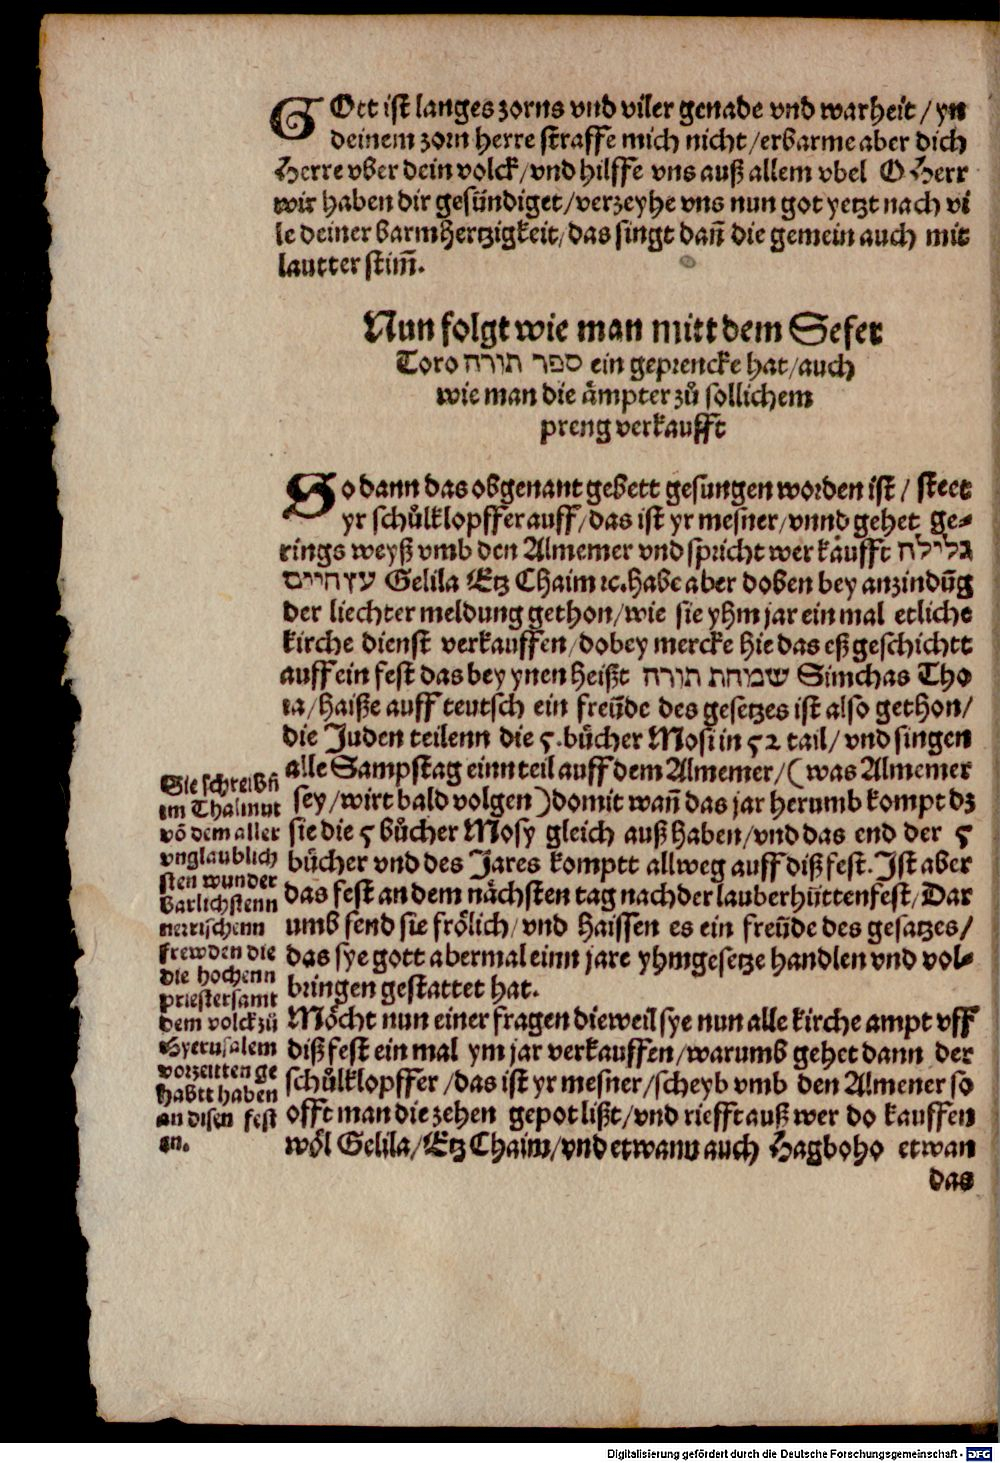 GOtt ist langes zorns vnd viler genade vnd warheit / yn
deinem zorn herre straffe mich nicht / erbarme aber dich
Herre vber dein volck / vnd hilffe vns auß allem vbel O Herr
wir haben dir gesündiget / verzeyhe vns nun got yetzt nach vi
le deiner barmhertzigkeit / das singt dañ die gemein auch mit
lautter stim̃.
Nun folgt wie man mitt dem Sefer
Toro ספר תורה ein geprencke hat / auch
wie man die ämpter zů sollichem
preng verkaufft
So dann das obgenant gebett gesungen worden ist / steet
yr schůlklopffer auff / das ist yr mesner / vnnd gehet ge⸗
rings weyß vmb den Almemer vnd spricht wer kaufft גלילה
עץ חיים Gelila Etz Chaim ⁊c. habe aber doben bey anzindũg
der liechter meldung gethon / wie sie yhm jar ein mal etliche
kirche dienst verkauffen / dobey mercke hie das eß geschichtt
auff ein fest das bey ynen heißt שמחת תורה Simchas Tho
ra / haiße auff teutsch ein freũde des gesetzes ist also gethon /
die Juden teilenn die 5. bücher Mosi in 52 tail / vnd singen
alle Sampstag einn teil auff dem Almemer / ( was Almemer
sey / wirt bald volgen ) domit wañ das jar herumb kompt dz
sie die 5 bůcher Mosy gleich auß haben / vnd das end der 5
bücher vnd des Jares komptt allweg auff diß fest. Ist aber
das fest an dem nächsten tag nach der lauberhüttenfest / Dar
umb send sie frölich / vnd haissen es ein freũde des gesatzes /
das sye gott abermal einn jare yhm gesetze handlen vnd vol⸗
bringen gestattet hat.
Möcht nun einer fragen dieweil sye nun alle kirche ampt vff
diß fest ein mal ym jar verkauffen / warumb gehet dann der
schůlklopffer / das ist yr mesner / scheyb vmb den Almener so
offt man die zehen gepot lißt / vnd riefft auß wer do kauffen
wöl Gelila / Etz Chaim / vnd etwann auch Hagboho etwan
das
Sie schreibñ
im Thalmut
võ dem aller
vnglaublich
sten wunder
barlichstenn
nerrischenn
frewden die
die hochenn
priester samt
dem volck zů
Hyerusalem
vorzeitten ge
habtt haben
an disen fest
an.
Digitalisierung gefördert durch die Deutsche Forschungsgemeinschaft - DFG